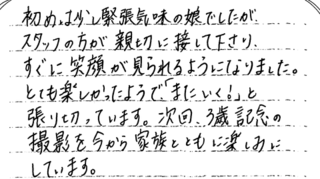 初めは少し緊張気味の娘でしたが
スタッフの方が親切に接して下さり、
すぐに笑顔が見られるようになりました。
とても楽しかったようで「またいく!」と
張り切っています。次回、3歳記念の
撮影を今から家族とともに楽しみに
しています。